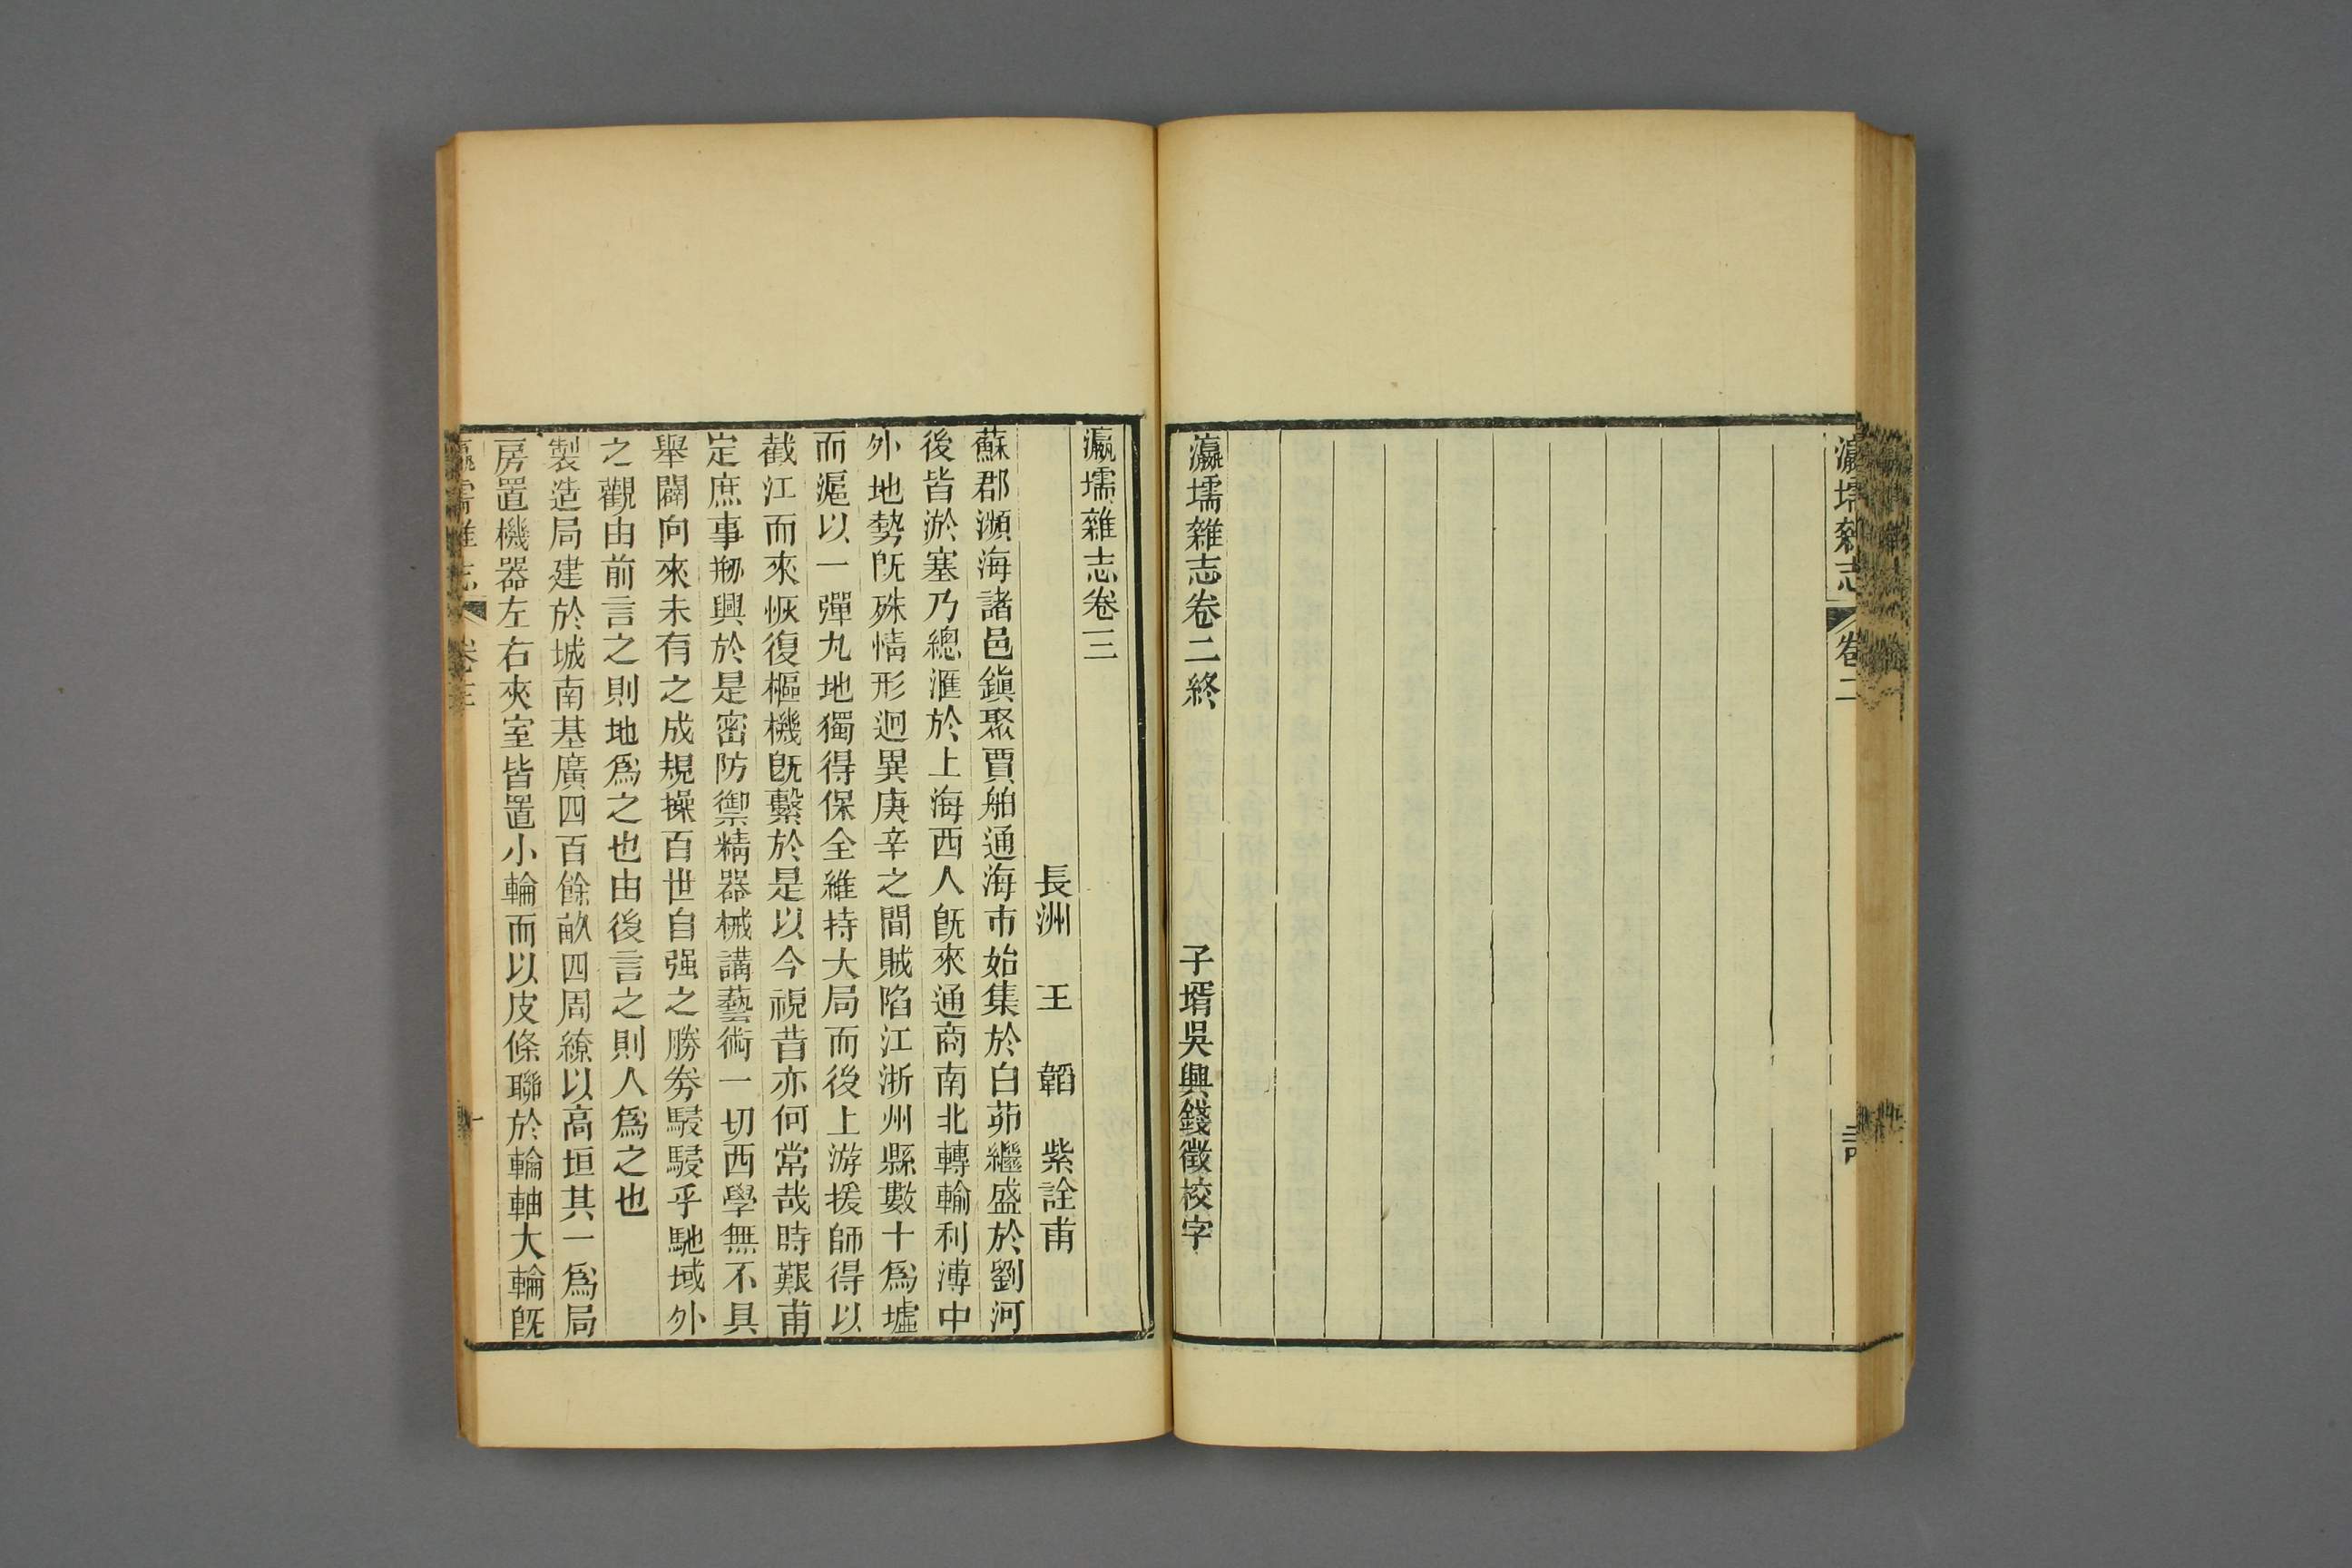 瀛壖雜志 卷二
瀛壖雜志卷二終 子壻吳興錢徵校字
瀛壖雜志卷三
長洲 王 韜 紫詮甫
蘇郡瀕海諸邑鎮聚賈舶通海市始集於白茆繼盛於劉河
後皆淤塞乃總滙於上海西人旣來通商南北轉輸利溥中
外地勢旣殊情形迥異庚辛之間賊陷江浙州縣數十爲墟
而滬以一彈丸地獨得保全維持大局而後上游援師得以
截江而來恢復樞機旣繫於是以今視昔亦何常哉時艱甫
定庶事刱興於是密防禦精器械講藝術一切西學無不具
舉闢向來未有之成規操百世自强之勝劵駸駸乎馳域外
之觀由前言之則地爲之也由後言之則人爲之也
製造局建於城南基廣四百餘畝四周繚以高垣其一爲局
房置機器左右夾室皆置小輪而以皮條聯於輪軸大輪旣
瀛壖雜志 卷三 一